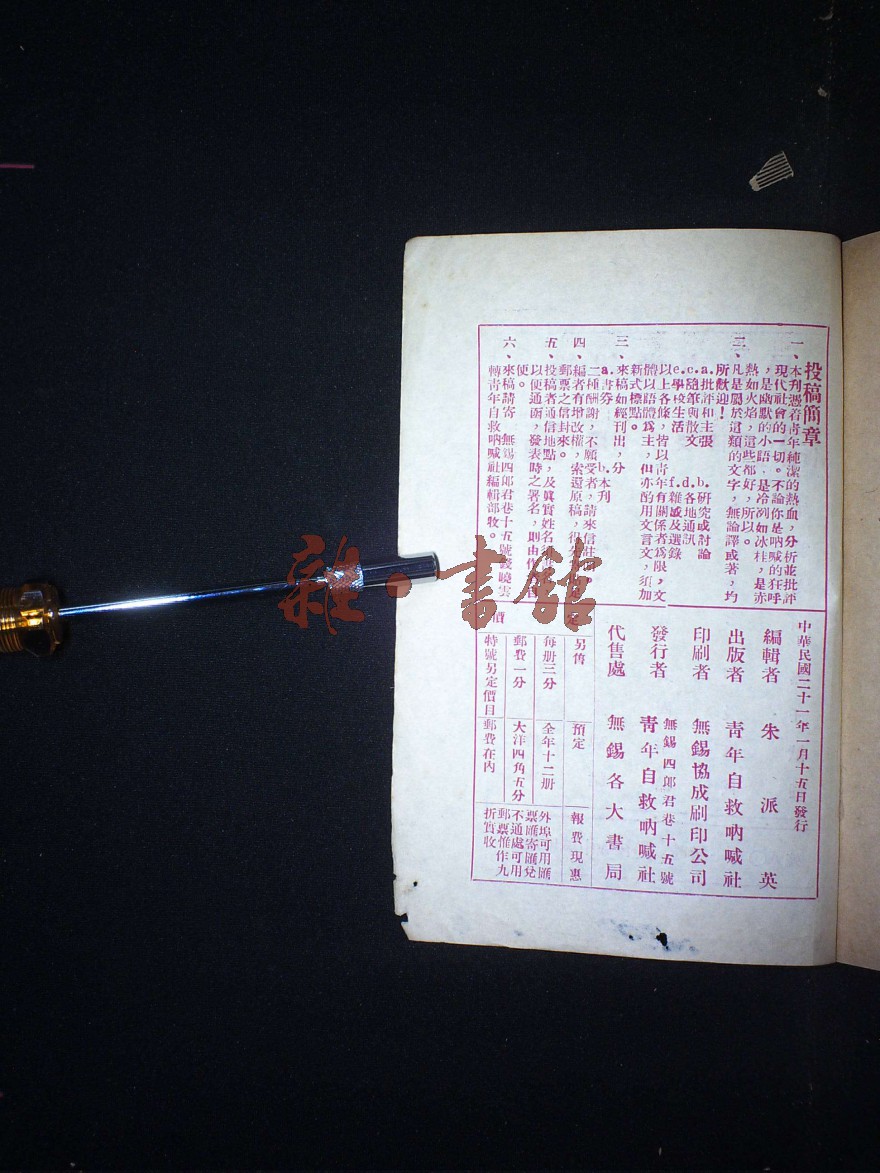 投稿簡章
一、本刊憑着青年純潔的熱血，分析並批評
現代社會的一切。不論你是吶喊的狂呼
，是幽默的小語，是冷冽如冰柱，是赤
熱如火焰，這些都好，所以
二、凡是屬於這類的文字，無論譯或著，均
所歡迎！
a. 批評和主張 b. 研究或討論
c. 隨筆與散文 d. 各地通訊
e. 學校生活 f. 雜感及選錄
以上各條，皆以青年有關係者為限，文
體以語體為主，但亦酌用文言文，須加
新式標點。
三、來稿如經刊出，分
a. 書券 b. 本刊
二種酬謝，不願受者，請來信
四、編者有增改權，索還原稿，得
郵票之信封來。
五、投稿者通信地點，及眞實姓名
以便通函，發表時之署名，則由作
便。
六、來稿請寄 無錫四郎君巷十五號 曉雲
轉青年自救吶喊社編輯部收。
中華民國二十一年一月十五日發行
編輯者 朱派英
出版者 青年自救吶喊社
印刷者 無錫協成刷印公司
無錫四郎君巷十五號
發行者 青年自救吶喊社
代售處 無錫各大書局
定價
另售 預定 報費現惠
每册三分 全年十二册 外埠可用匯
票匯寄匯兌
郵費一分 大洋四角五分 不通處可用
郵票惟作九
特號另定價目 郵費在內 折實收
雜·書館